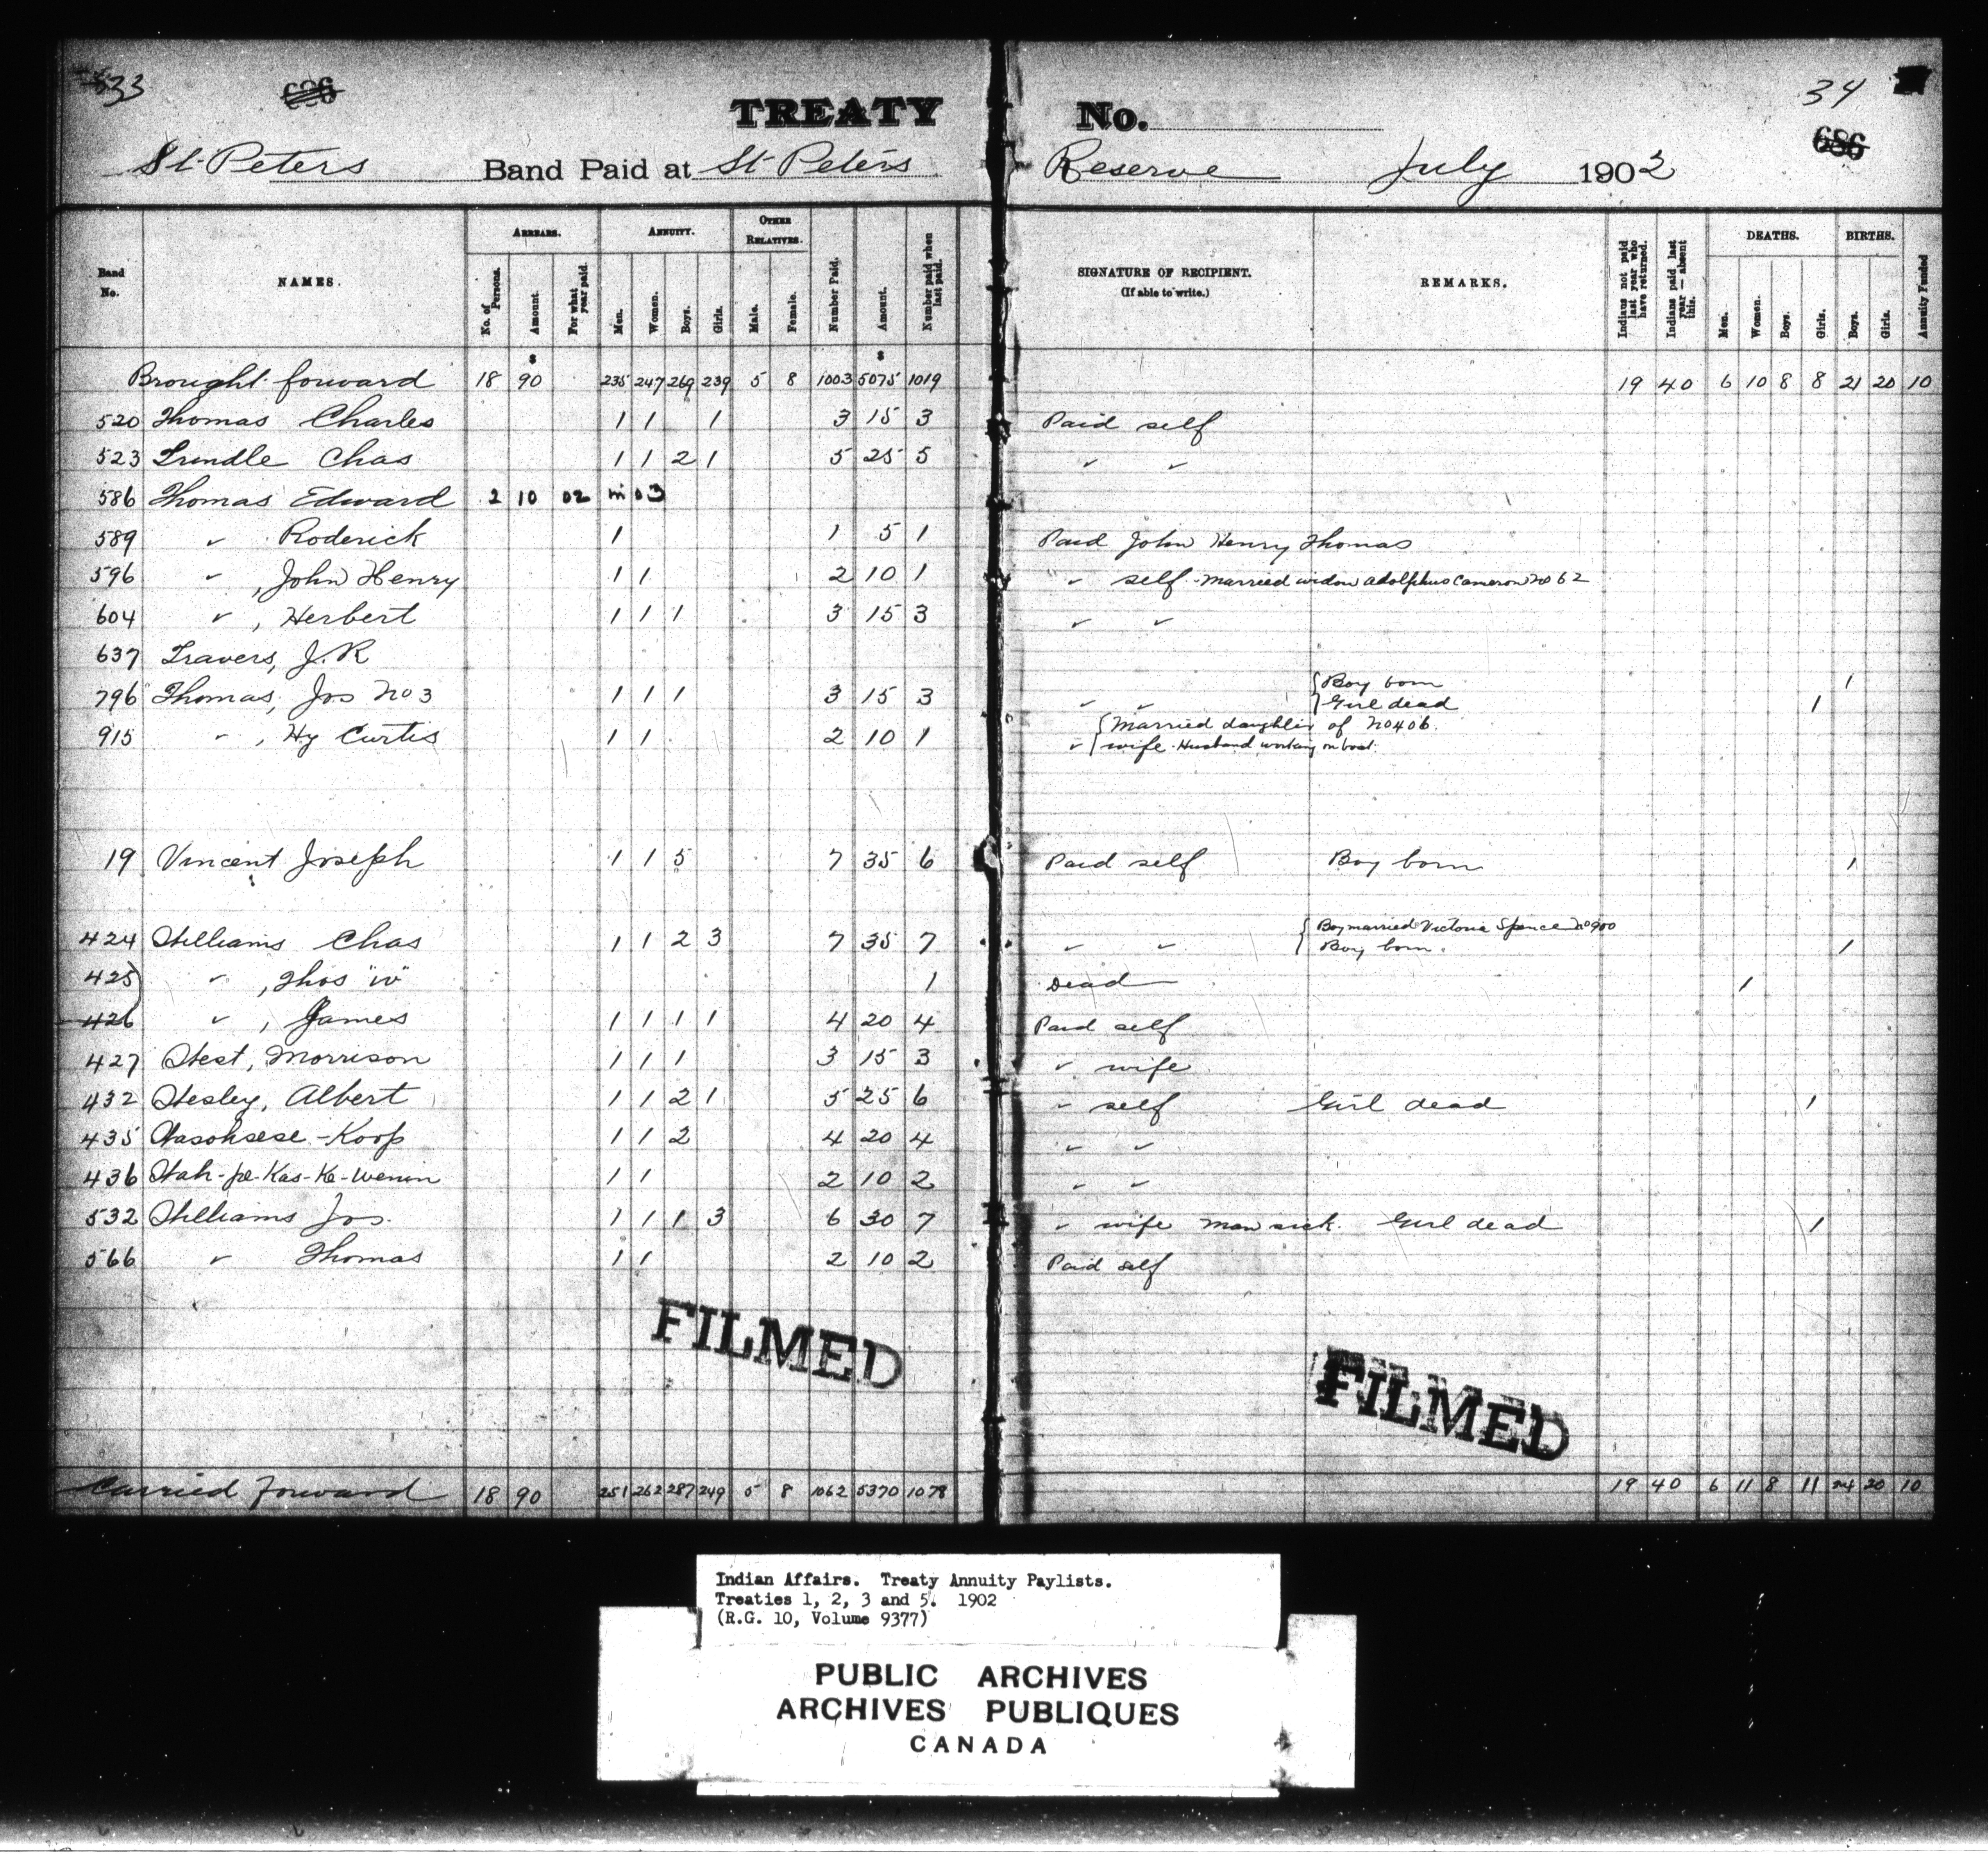 33 686 TREATY No. 34 686
St Peters Band Paid at St Peters Reserve July 1902
Band No. NAMES. ARREARS. No. of Persons. Amount For what year paid. ANNUITY. Men. Women. Boys. Girls. OTHER RELATIVES. Male. Female. Number Paid. Amount. Number paid when last paid. SIGNATURE OF RECIPIENT. (If able to write.) REMARKS. Indians not paid last year who have returned. Indians paid last year — absent this. DEATHS. Men. Women. Boys. Girls. BIRTHS. Boys. Girls. Annuity Funded
$ $
Brought forward 18 90 235 247 269 239 5 8 1003 5075 1019 19 40 6 10 8 8 21 20 10
520 Thomas Charles 1 1 1 3 15 3 Paid self
523 Trindle Chas 1 1 2 1 5 25 5 ✓ ✓
586 Thomas Edward 2 10 02 in 03
589 ✓ Roderick 1 1 5 1 Paid John Henry Thomas
596 ✓ , John Henry 1 1 2 10 1 ✓ self - Married widow Adolphus Cameron No 62
604 ✓ , Herbert 1 1 1 3 15 3 ✓ ✓
637 Travers, J. R
796 Thomas, Jos No 3 1 1 1 3 15 3 ✓ ✓ { Boy born 1
Girl dead 1
915 ✓ , Hy Curtis 1 1 2 10 1 ✓ { Married daughter of No 406.
wife - Husband working on boat.
19 Vincent Joseph 1 1 5 7 35 6 Paid self Boy born 1
424 Williams Chas 1 1 2 3 7 35 7 ✓ ✓ { Boy married Victoria Spence No 900
Boy born. 1
425 ✓ , Thos "W" 1 Dead 1
426 ✓ , James 1 1 1 1 4 20 4 Paid self
427 West, Morrison 1 1 1 3 15 3 ✓ wife
432 Wesley, Albert 1 1 2 1 5 25 6 ✓ self Girl dead 1
435 Wasohsese-Koop 1 1 2 4 20 4 ✓ ✓
436 Wah-pe-Kas-Ke-Wenin 1 1 2 10 2 ✓ ✓
532 Williams Jos. 1 1 1 3 6 30 7 ✓ wife Man sick. Girl dead 1
566 ✓ Thomas 1 1 2 10 2 Paid self
FILMED FILMED
Carried Forward 18 90 251 262 287 249 5 8 1062 5370 1078 19 40 6 11 8 11 24 20 10
Indian Affairs. Treaty Annuity Paylists.
Treaties 1, 2, 3 and 5. 1902
(R.G. 10, Volume 9377)
PUBLIC ARCHIVES
ARCHIVES PUBLIQUES
CANADA